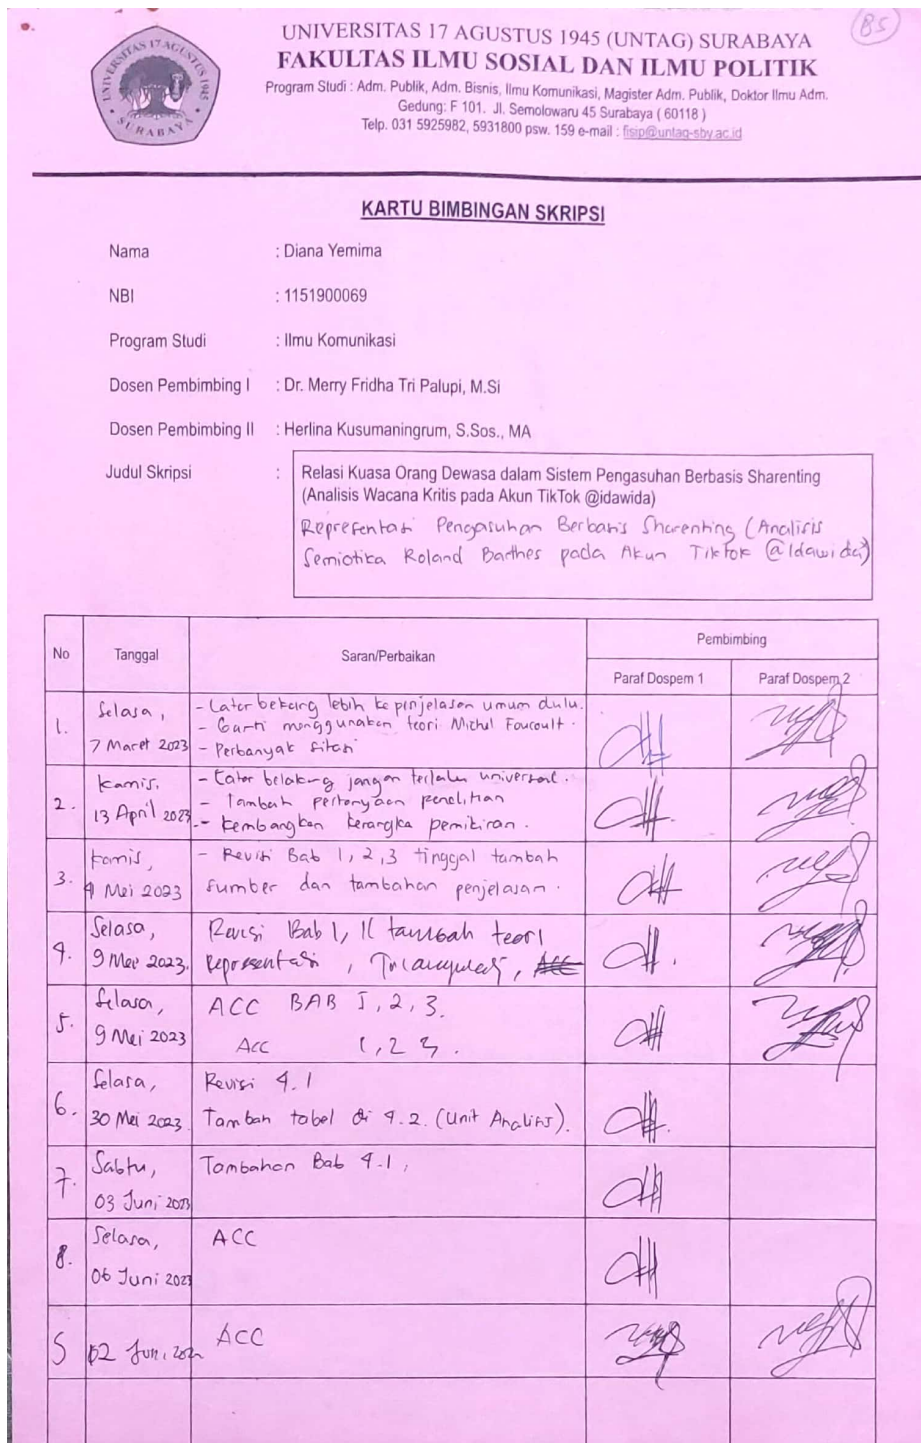 85
UNIVERSITAS 17 AGUSTUS 1945
SURABAYA
UNIVERSITAS 17 AGUSTUS 1945 (UNTAG) SURABAYA
FAKULTAS ILMU SOSIAL DAN ILMU POLITIK
Program Studi : Adm. Publik, Adm. Bisnis, Ilmu Komunikasi, Magister Adm. Publik, Doktor Ilmu Adm.
Gedung: F 101. Jl. Semolowaru 45 Surabaya ( 60118 )
Telp. 031 5925982, 5931800 psw. 159 e-mail : fisip@untag-sby.ac.id
KARTU BIMBINGAN SKRIPSI
Nama : Diana Yemima
NBI : 1151900069
Program Studi : Ilmu Komunikasi
Dosen Pembimbing I : Dr. Merry Fridha Tri Palupi, M.Si
Dosen Pembimbing II : Herlina Kusumaningrum, S.Sos., MA
Judul Skripsi : Relasi Kuasa Orang Dewasa dalam Sistem Pengasuhan Berbasis Sharenting
(Analisis Wacana Kritis pada Akun TikTok @idawida)
Representasi Pengasuhan Berbasis Sharenting (Analisis
Semiotika Roland Barthes pada Akun TikTok @Idawida)
No Tanggal Saran/Perbaikan Pembimbing
Paraf Dospem 1 Paraf Dospem 2
1. Selasa, 7 Maret 2023
- Latar belakang lebih ke penjelasan umum dulu.
- Ganti menggunakan teori Michel Foucoult.
- Perbanyak sitasi
2. Kamis, 13 April 2023
- Latar belakang jangan terlalu universal.
- Tambah pertanyaan penelitian
- Kembangkan kerangka pemikiran.
3. Kamis, 4 Mei 2023
- Revisi Bab 1, 2, 3 tinggal tambah
sumber dan tambahan penjelasan.
4. Selasa, 9 Mei 2023.
Revisi Bab I, II tambah teori
Representasi, Triangulasi, ACC
5. Selasa, 9 Mei 2023
ACC BAB 1, 2, 3.
ACC 1, 2 3.
6. Selasa, 30 Mei 2023.
Revisi 4.1
Tambah tabel di 4.2. (Unit Analisis).
7. Sabtu, 03 Juni 2023
Tambahan Bab 4.1,
8. Selasa, 06 Juni 2023
ACC
5 02 Juni
ACC